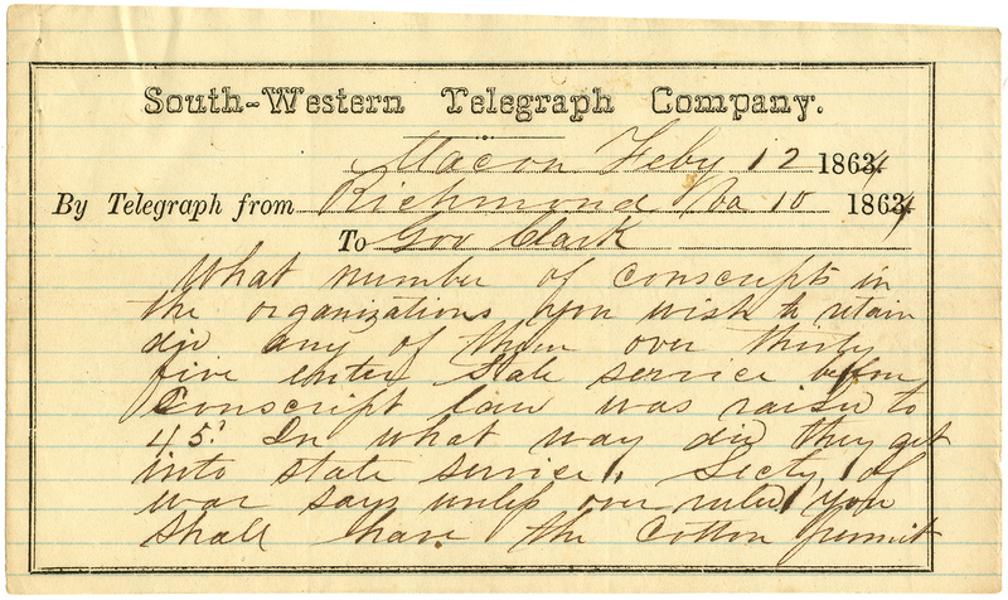 South-Western Telegraph Company.
Macon Feby 12 1864
By Telegraph from Richmond Va 10 1864
To Gov Clark
What number of conscripts in
the organizations you wish to retain
did any of them over thirty
five enter State service before
Conscript law was raised to
45? In what way did they get
into state service. Secty of
war says unless over ruled you
shall have the Cotton permit